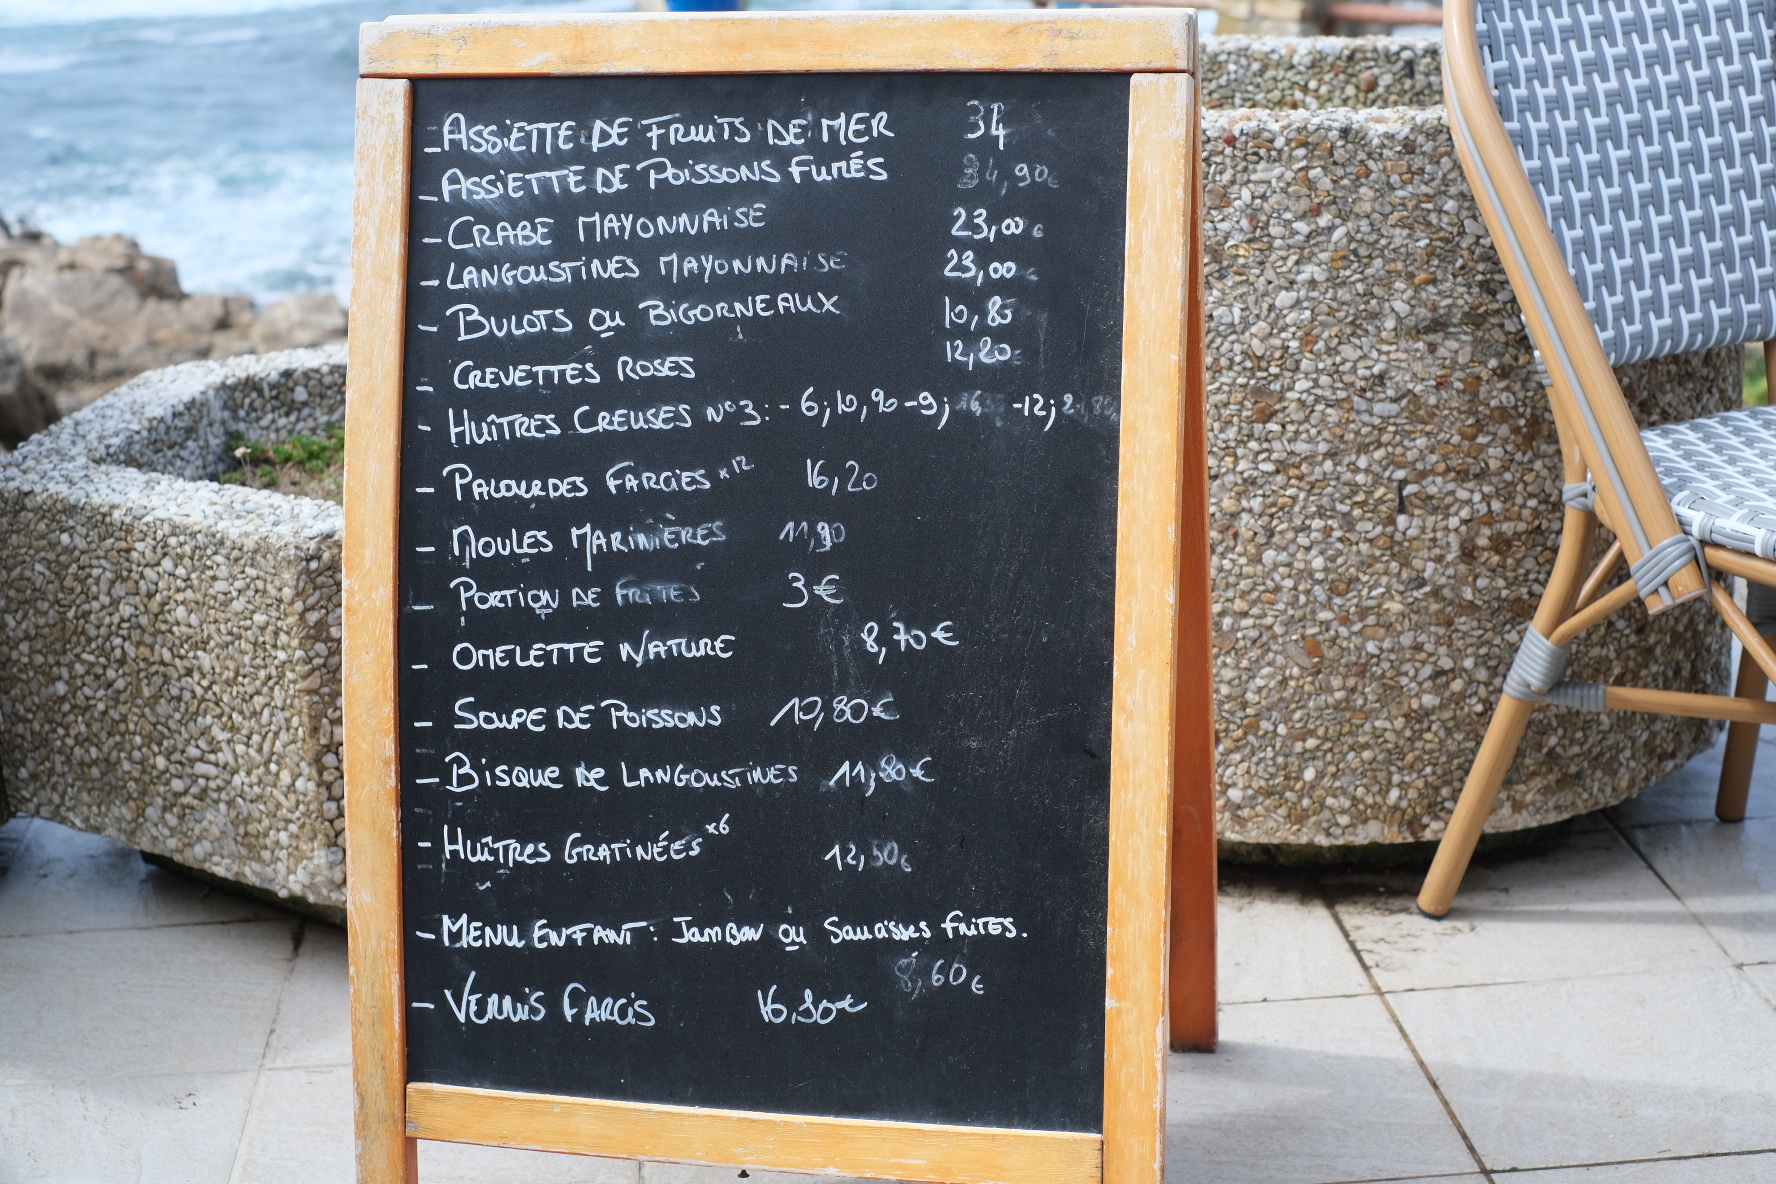 - ASSIETTE DE FRUITS DE MER 34
- ASSIETTE DE POISSONS FUMÉS 34,90€
- CRABE MAYONNAISE 23,00€
- LANGOUSTINES MAYONNAISE 23,00
- BULOTS OU BIGORNEAUX 10,85
- CREVETTES ROSES 12,20
- HUÎTRES CREUSES N°3: - 6; 10,90 - 9; -12;
- PALOURDES FARCIES x12 16,20
- MOULES MARINIÈRES 11,90
- PORTION DE FRITES 3€
- OMELETTE NATURE 8,70€
- SOUPE DE POISSONS 10,80€
- BISQUE DE LANGOUSTINES 11,80€
- HUÎTRES GRATINÉES x6 12,50€
- MENU ENFANT: JAMBON OU Saucisses FRITES.
8,60€
- VERNIS FARCIS 16,90€